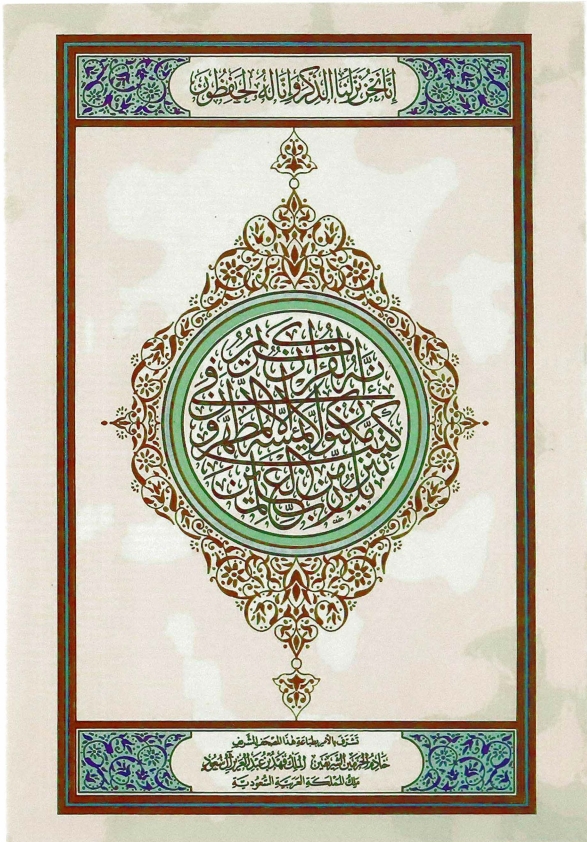 إِنَّا نَحْنُ نَزَّلْنَا ٱلذِّكْرَ وَإِنَّا لَهُۥ لَحَٰفِظُونَ
إِنَّهُۥ لَقُرْءَانٌ كَرِيمٌ
فِى
كِتَٰبٍ مَّكْنُونٍ لَّا يَمَسُّهُۥٓ إِلَّا ٱلْمُطَهَّرُونَ
تَنزِيلٌ مِّن رَّبِّ ٱلْعَٰلَمِينَ
تشرّف بالأمر بطباعة هذا المصحف الشريف
خادم الحرمين الشريفين الملك فهد بن عبد العزيز آل سعود
ملك المملكة العربية السعودية